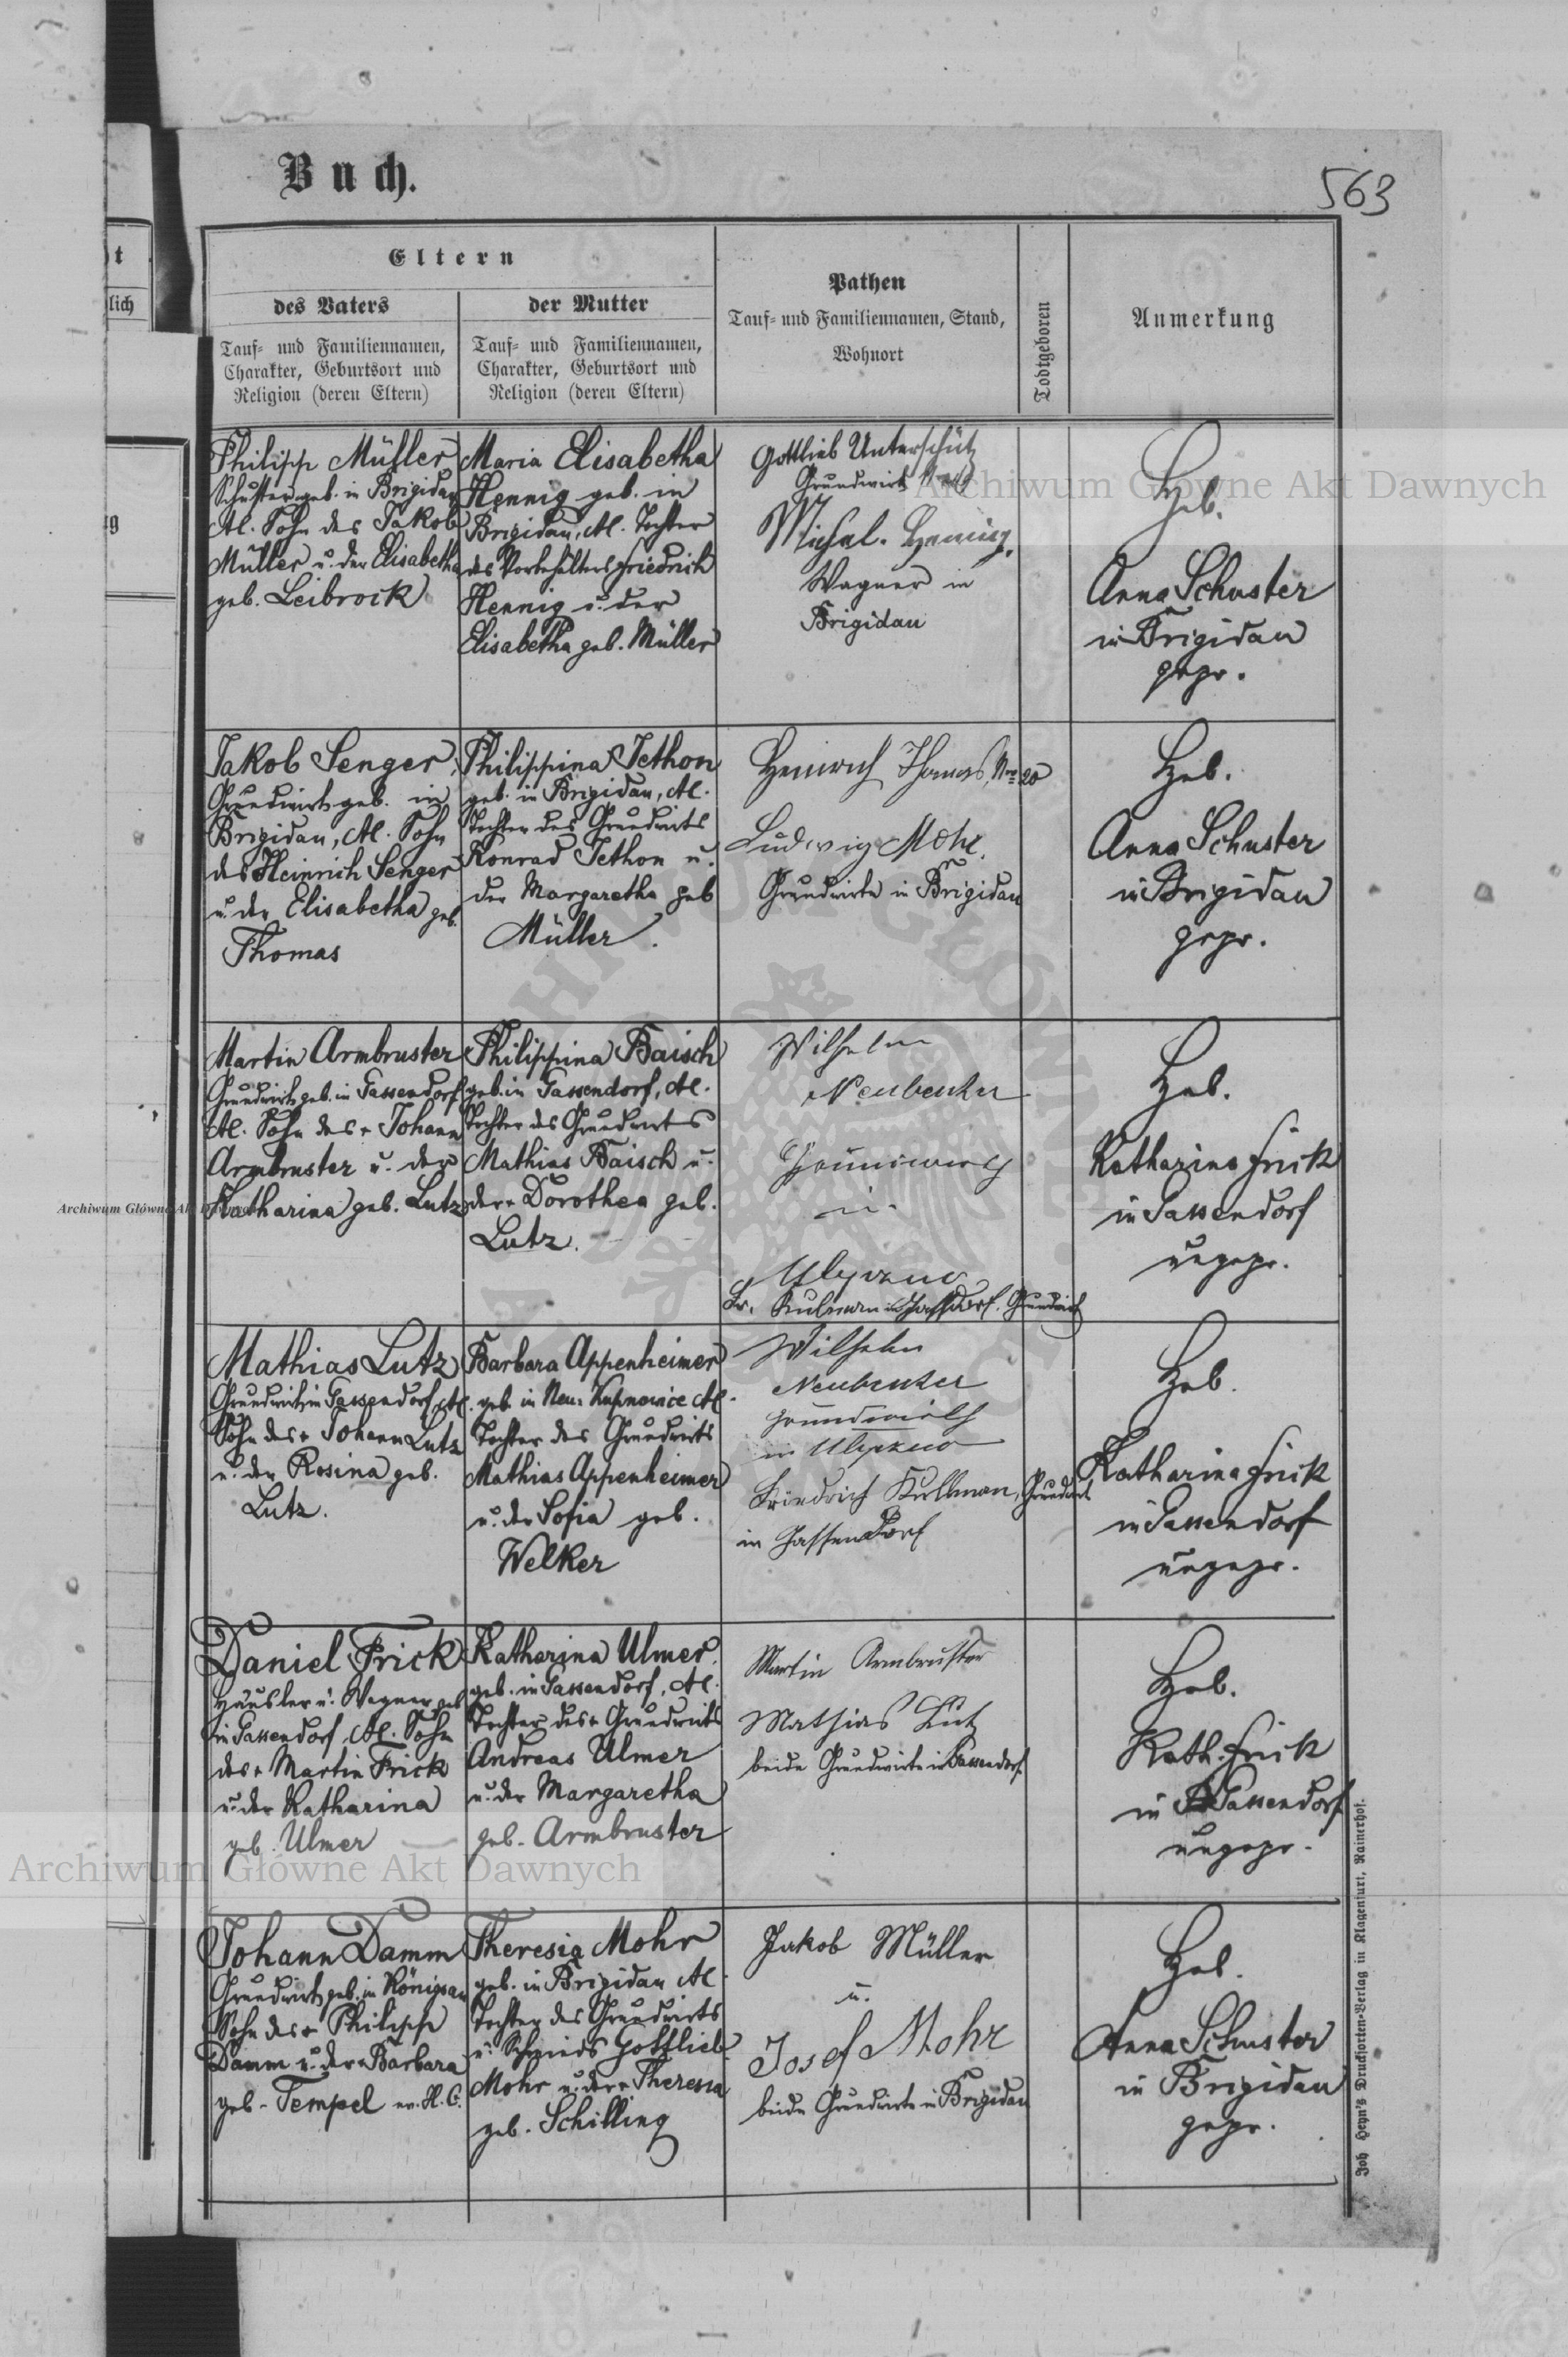 Buch.
563
t
lich
g
Eltern
des Vaters
Tauf- und Familiennamen,
Charakter, Geburtsort und
Religion (deren Eltern)
der Mutter
Tauf- und Familiennamen,
Charakter, Geburtsort und
Religion (deren Eltern)
Pathen
Tauf- und Familiennamen, Stand,
Wohnort
Todtgeboren
Anmerkung
Philipp Müller
Schuster geb. in Brigidau
Al. Sohn des Jakob
Müller u. der Elisabetha
geb. Leibrock
Maria Elisabetha
Hennig geb. in
Brigidau, Al. Tochter
des Vorbehälters Friedrich
Hennig u. der
Elisabetha geb. Müller
Gottlieb Unterschütz
Grundwirt
Michal. Hennig,
Wagner in
Brigidau
Heb.
Anna Schuster
in Brigidau
gepr.
Jakob Senger,
Grundwirt geb. in
Brigidau, Al. Sohn
des Heinrich Senger
u. der Elisabetha geb.
Thomas
Philippina Jethon
geb. in Brigidau, Al.
Tochter des Grundwirts
Konrad Jethon u.
der Margaretha geb
Müller.
Heinrich Thomas, Nro 20
Ludwig Mohr.
Grundwirte in Brigidau
Heb.
Anna Schuster
in Brigidau
gepr.
Martin Armbruster
Grundwirt geb. in Gassendorf
Al. Sohn des + Johann
Armbruster u. der
Katharina geb. Lutz
Philippina Baisch
geb. in Gassendorf, Al.
Tochter des Grundwirts
Mathias Baisch u.
der + Dorothea geb.
Lutz.
Wilhelm
Neubenker
in
Ulyczno
Fr. Kulman in Gassendorf, Grundwirt
Heb.
Katharina Frick
in Gassendorf
ungepr.
Mathias Lutz
Grundwirt in Gassendorf, Al.
Sohn des + Johann Lutz
u. der Rosina geb.
Lutz.
Barbara Appenheimer
geb. in Neu Kupnowice Al.
Tochter des Grundwirts
Mathias Appenheimer
u. der Sofia geb.
Welker
Wilhelm
Neubenker
Grundwirth
in Ulyczno
Friedrich Kullman, Grundwirt
in Gassendorf
Heb.
Katharina Frick
in Gassendorf
ungepr.
Daniel Frick
Häusler u. Wagner geb
in Gassendorf, Al. Sohn
des + Martin Frick
u. der Katharina
geb. Ulmer
Katharina Ulmer,
geb. in Gassendorf, Al.
Tochter des + Grundwirts
Andreas Ulmer
u. der Margaretha
geb. Armbruster
Martin Armbruster
Mathias Lutz
beide Grundwirte in Gassendorf
Heb.
Kath. Frick
in Gassendorf
ungepr.
Johann Damm
Grundwirt geb. in Königsau
Sohn des + Philipp
Damm u. der + Barbara
geb. Tempel ev. H. C.
Theresia Mohr
geb. in Brigidau Al
Tochter des Grundwirts
u. Schmieds Gottlieb
Mohr u. der + Theresia
geb. Schilling
Jakob Müller
u.
Josef Mohr
beide Grundwirte in Brigidau
Heb.
Anna Schuster
in Brigidau
gepr.
Joh Heyn's Drucksorten-Verlag in Klagenfurt, Rainerhof.
Archiwum Główne Akt Dawnych
Archiwum Główne Akt Dawnych
Archiwum Główne Akt Dawnych
ARCHIWUM GŁÓWNE